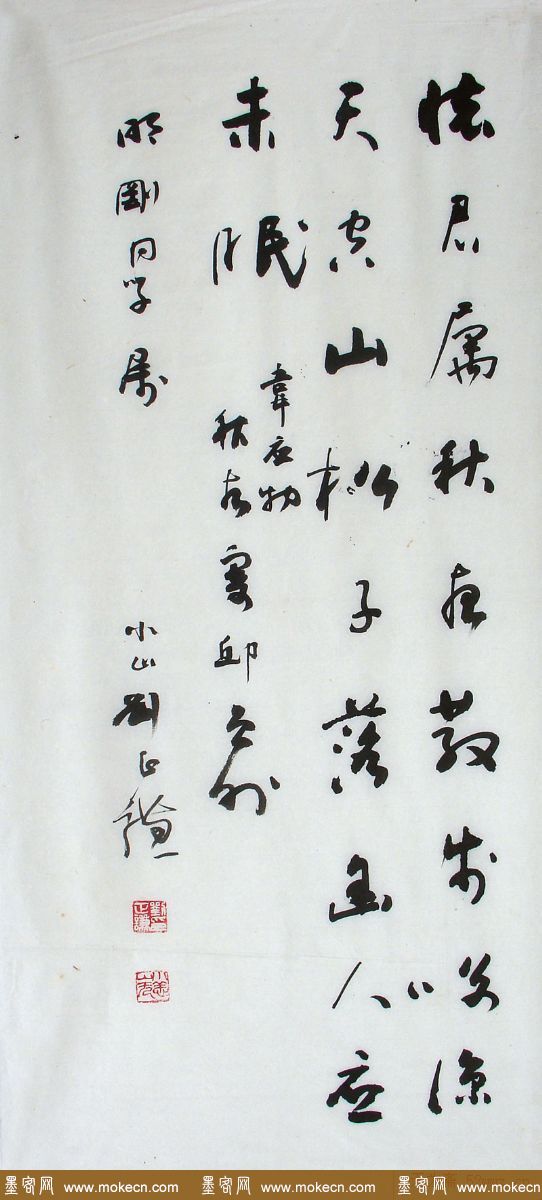 懷君属秋夜散步詠涼
天空山松子落幽人应
未眠
韋应物
秋夜寄邱員外
明剛同学属
小山劉正謙
墨客网 www.mokecn.com 墨客网 www.mokecn.com 墨客网 www.mokecn.com